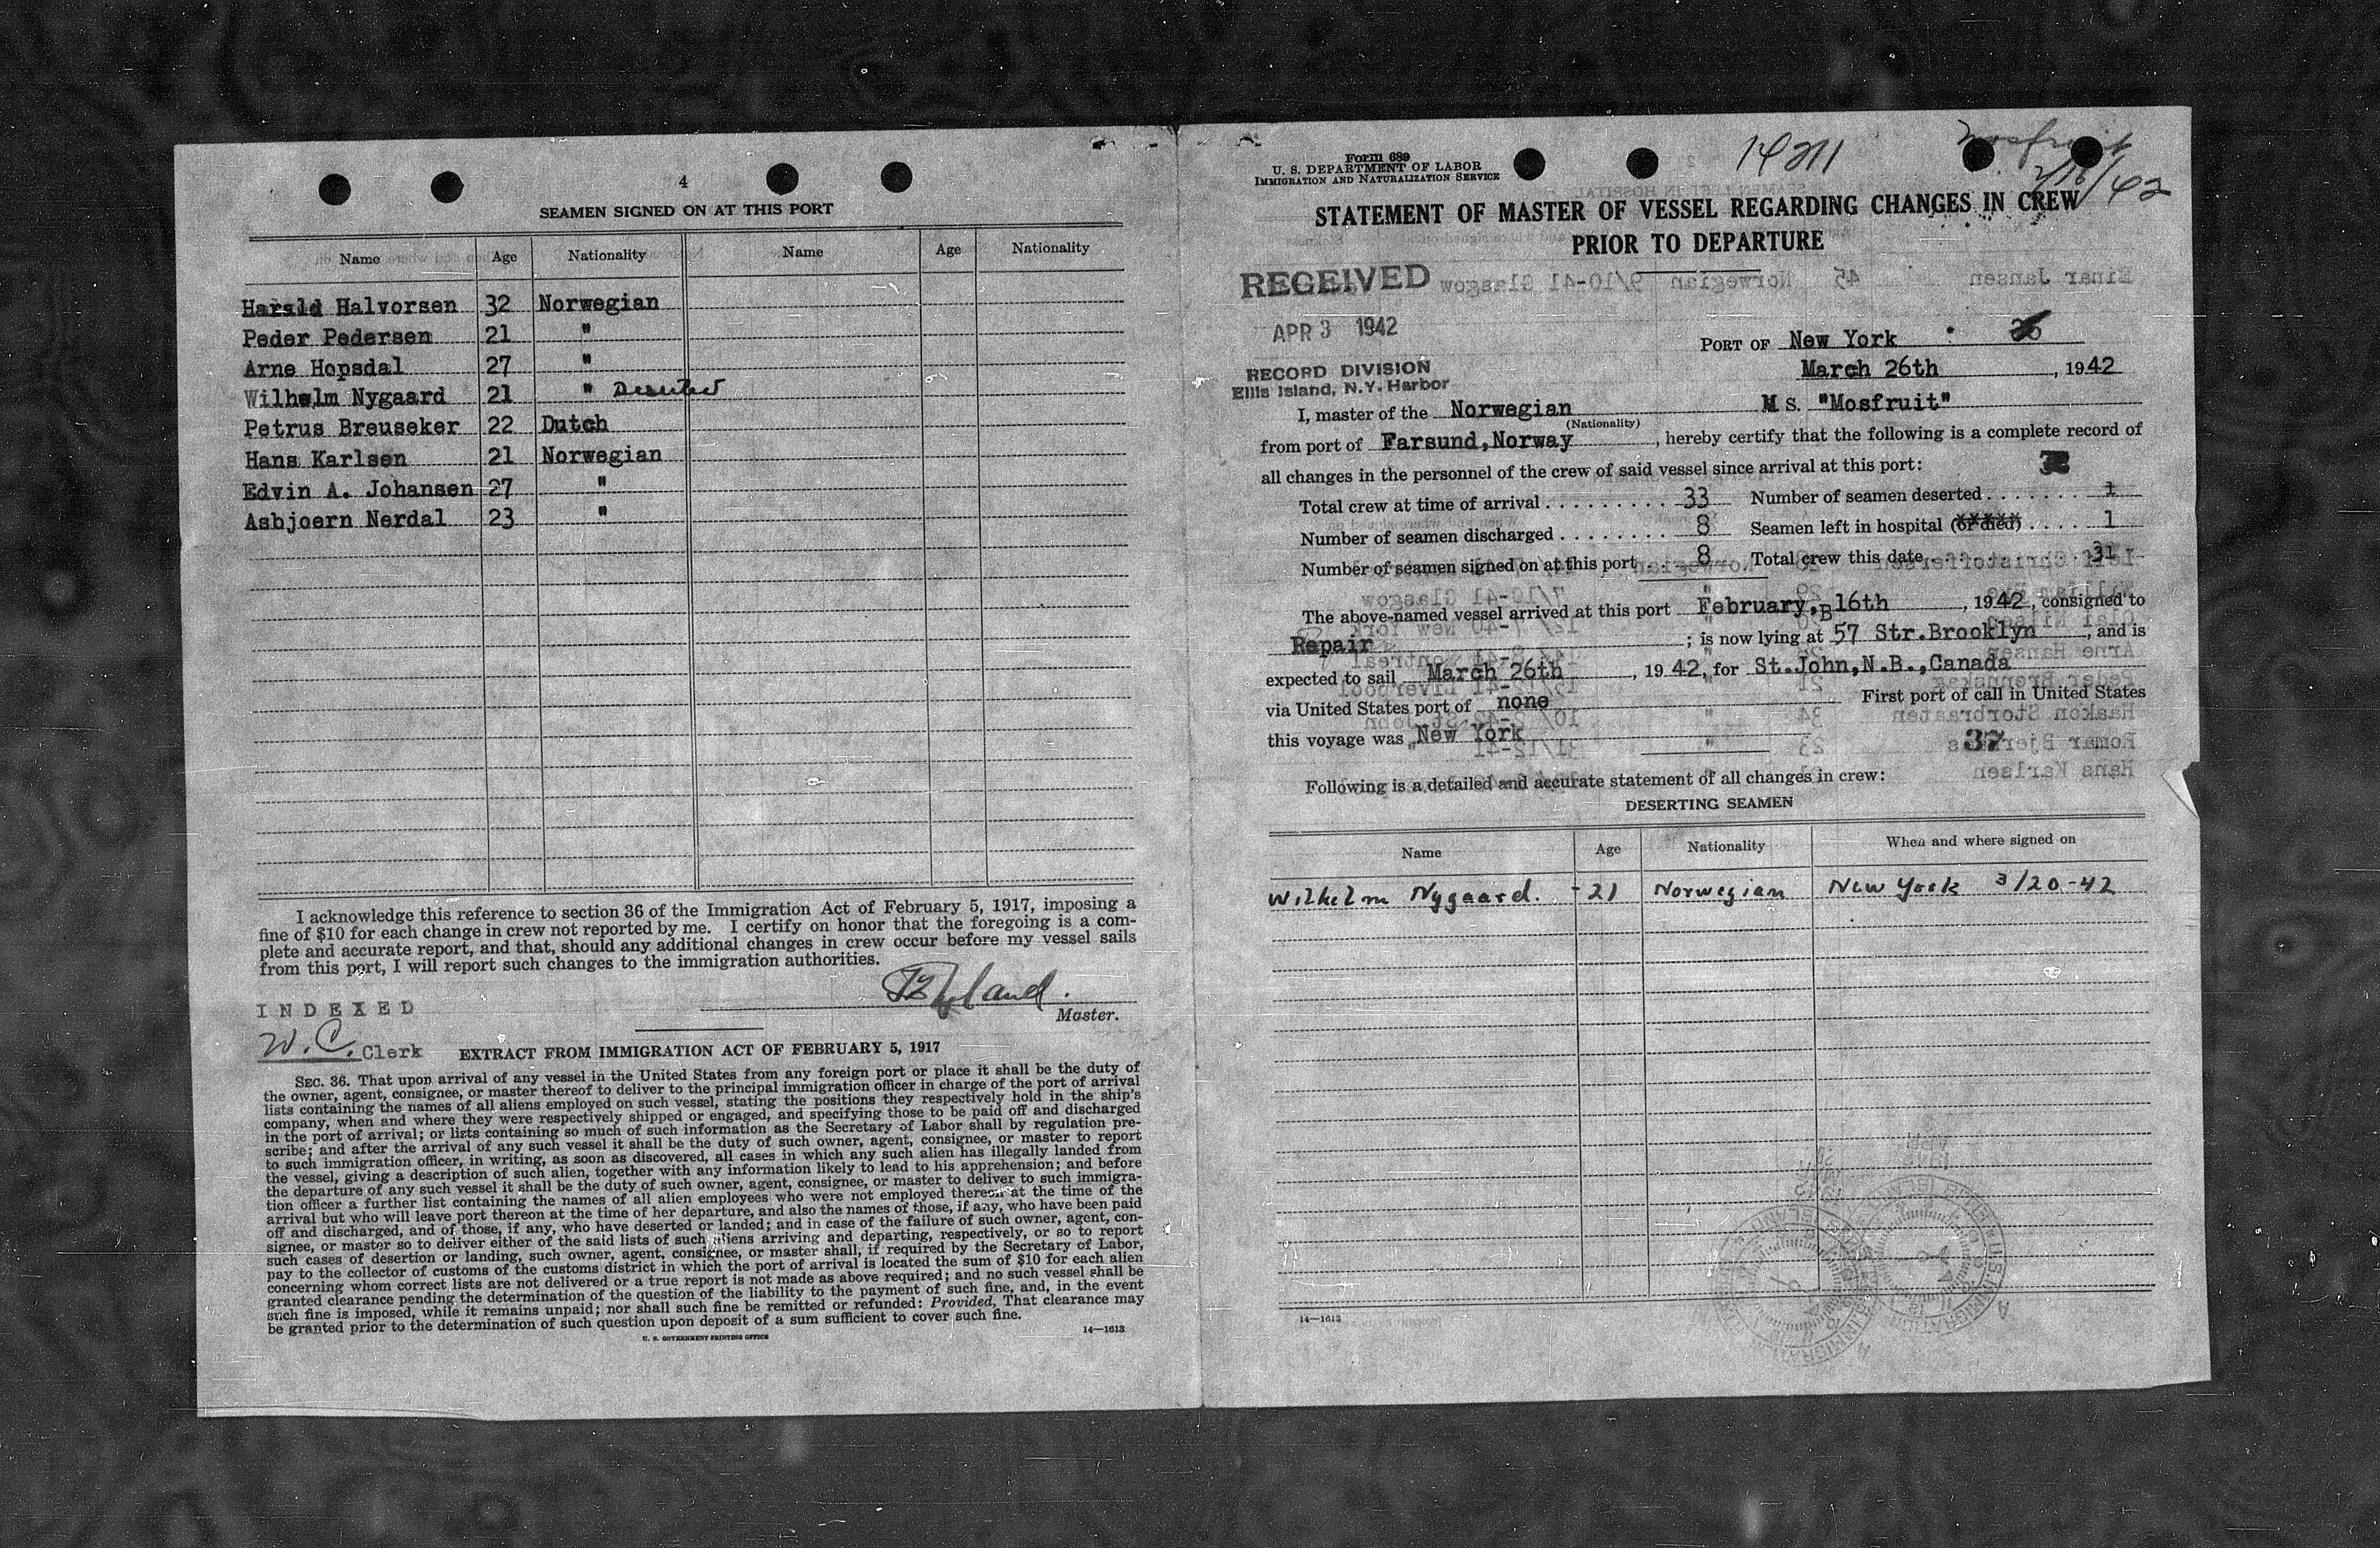 4
SEAMEN SIGNED ON AT THIS PORT
Name Age Nationality Name Age Nationality
Harald Halvorsen 32 Norwegian
Peder Pedersen 21 "
Arne Hopsdal 27 "
Wilhelm Nygaard 21 " Deserted
Petrus Breuseker 22 Dutch
Hans Karlsen 21 Norwegian
Edvin A. Johansen 27 "
Asbjoern Nerdal 23 "
I acknowledge this reference to section 36 of the Immigration Act of February 5, 1917, imposing a
fine of $10 for each change in crew not reported by me. I certify on honor that the foregoing is a com-
plete and accurate report, and that, should any additional changes in crew occur before my vessel sails
from this port, I will report such changes to the immigration authorities.
Master.
INDEXED
W.C. Clerk
EXTRACT FROM IMMIGRATION ACT OF FEBRUARY 5, 1917
SEC. 36. That upon arrival of any vessel in the United States from any foreign port or place it shall be the duty of
the owner, agent, consignee, or master thereof to deliver to the principal immigration officer in charge of the port of arrival
lists containing the names of all aliens employed on such vessel, stating the positions they respectively hold in the ship's
company, when and where they were respectively shipped or engaged, and specifying those to be paid off and discharged
in the port of arrival; or lists containing so much of such information as the Secretary of Labor shall by regulation pre-
scribe; and after the arrival of any such vessel it shall be the duty of such owner, agent, consignee, or master to report
to such immigration officer, in writing, as soon as discovered, all cases in which any such alien has illegally landed from
the vessel, giving a description of such alien, together with any information likely to lead to his apprehension; and before
the departure of any such vessel it shall be the duty of such owner, agent, consignee, or master to deliver to such immigra-
tion officer a further list containing the names of all alien employees who were not employed thereon at the time of the
arrival but who will leave port thereon at the time of her departure, and also the names of those, if any, who have been paid
off and discharged, and of those, if any, who have deserted or landed; and in case of the failure of such owner, agent, con-
signee, or master so to deliver either of the said lists of such aliens arriving and departing, respectively, or so to report
such cases of desertion or landing, such owner, agent, consignee, or master shall, if required by the Secretary of Labor,
pay to the collector of customs of the customs district in which the port of arrival is located the sum of $10 for each alien
concerning whom correct lists are not delivered or a true report is not made as above required; and no such vessel shall be
granted clearance pending the determination of the question of the liability to the payment of such fine, and, in the event
such fine is imposed, while it remains unpaid; nor shall such fine be remitted or refunded: Provided, That clearance may
be granted prior to the determination of such question upon deposit of a sum sufficient to cover such fine.
U. S. GOVERNMENT PRINTING OFFICE 14—1613
Form 689
U. S. DEPARTMENT OF LABOR
IMMIGRATION AND NATURALIZATION SERVICE
14211
Mosfruit
2/16/42
STATEMENT OF MASTER OF VESSEL REGARDING CHANGES IN CREW
PRIOR TO DEPARTURE
RECEIVED
APR 3 1942
RECORD DIVISION
Ellis Island, N.Y. Harbor
PORT OF New York
March 26th, 1942
I, master of the Norwegian M S. "Mosfruit"
(Nationality)
from port of Farsund, Norway, hereby certify that the following is a complete record of
all changes in the personnel of the crew of said vessel since arrival at this port:
Total crew at time of arrival 33 Number of seamen deserted 1
Number of seamen discharged 8 Seamen left in hospital (or died) 1
Number of seamen signed on at this port 8 Total crew this date 31
The above-named vessel arrived at this port February, 16th, 1942, consigned to
Repair; is now lying at 57 Str. Brooklyn, and is
expected to sail March 26th, 1942, for St. John, N.B., Canada
via United States port of none First port of call in United States
this voyage was New York
37
Following is a detailed and accurate statement of all changes in crew:
DESERTING SEAMEN
Name Age Nationality When and where signed on
Wilhelm Nygaard. 21 Norwegian New York 3/20-42
14—1613